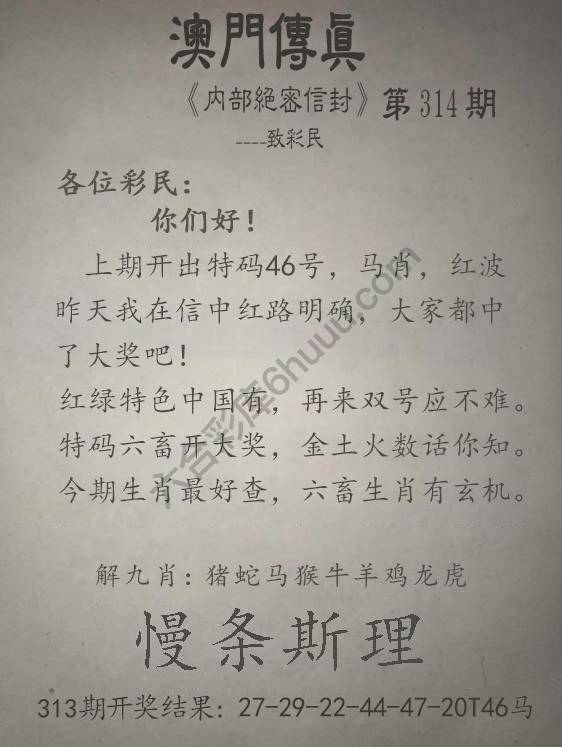 澳門傳眞
《内部絕密信封》第314期
----致彩民
各位彩民:
你们好!
上期开出特码46号，马肖，红波
昨天我在信中红路明确，大家都中
了大奖吧!
红绿特色中国有，再来双号应不难。
特码六畜开大奖，金土火数话你知。
今期生肖最好查，六畜生肖有玄机。
六合彩库6huuu.com
解九肖:猪蛇马猴牛羊鸡龙虎
慢条斯理
313期开奖结果:27-29-22-44-47-20T46马